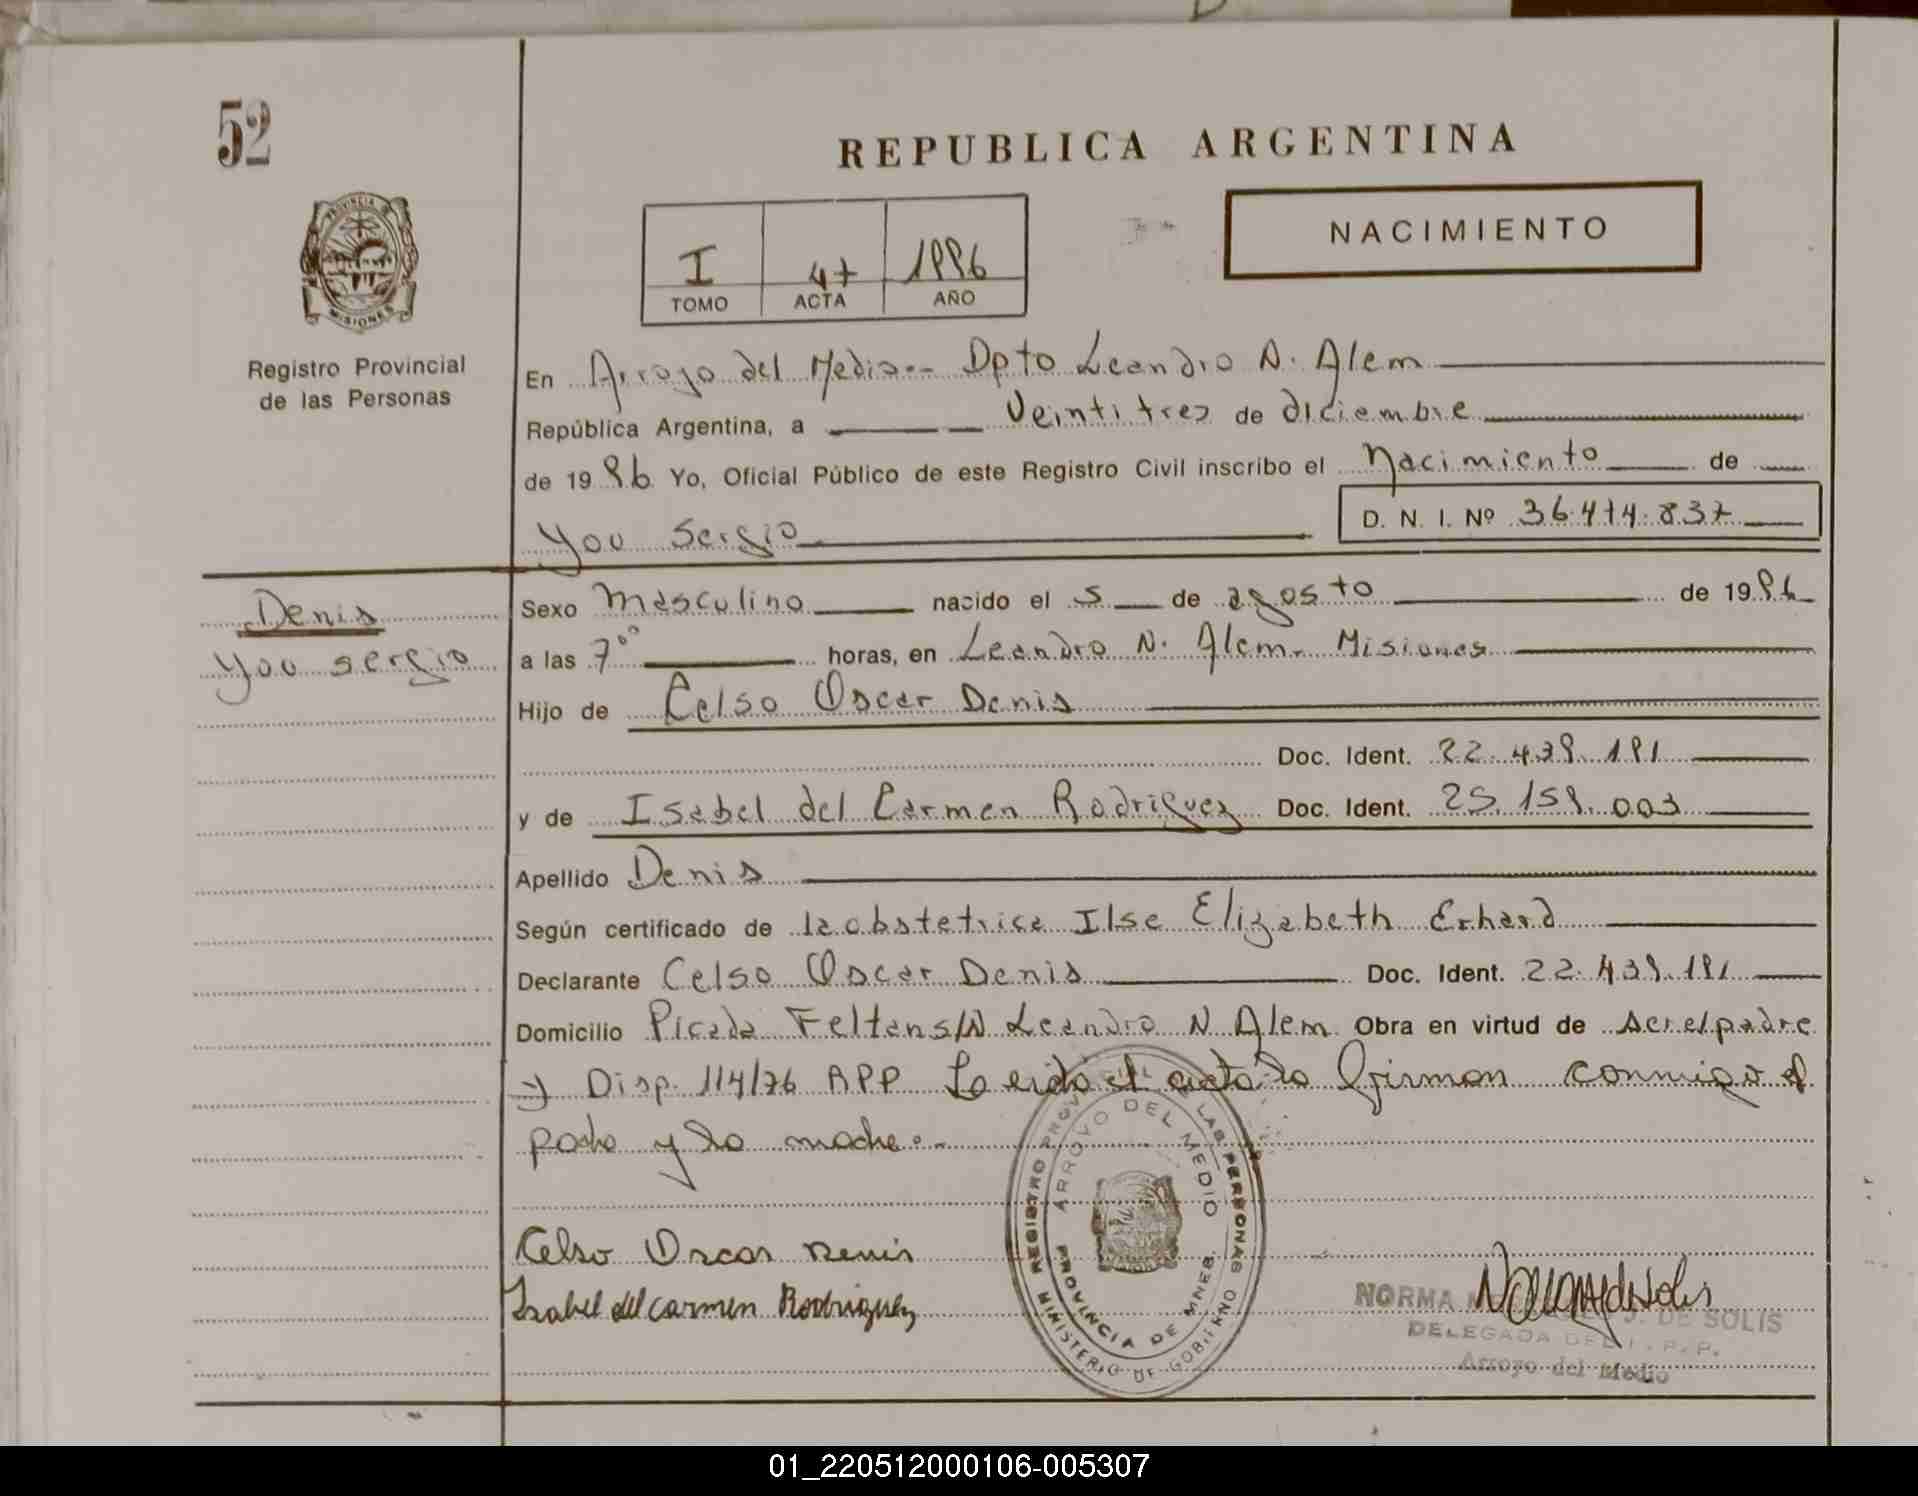 52
REPUBLICA ARGENTINA
PROVINCIA DE
MISIONES
NACIMIENTO
I 47 1986
TOMO ACTA AÑO
Registro Provincial
de las Personas
En Arroyo del Medio.- Dpto Leandro N. Alem
República Argentina, a Veintitres de diciembre
de 19 86 Yo, Oficial Público de este Registro Civil inscribo el Nacimiento de
You Sergio D. N. I. Nº 36.474.837
Denis
You Sergio
Sexo Masculino nacido el 5 de agosto de 19 86
a las 7°° horas, en Leandro N. Alem. Misiones
Hijo de Celso Oscar Denis
Doc. Ident. 22.439.191
y de Isabel del Carmen Rodriguez Doc. Ident. 25.159.003
Apellido Denis
Según certificado de la obstetrica Ilse Elizabeth Erhard
Declarante Celso Oscar Denis Doc. Ident. 22.439.191
Domicilio Picada Feltan s/N Leandro N Alem Obra en virtud de ser el padre
y Disp. 114/76 RPP Leida el acta la firman conmigo el
padre y la madre.-
Celso Oscar Denis
Isabel del carmen Rodriguez
REGISTRO PROVINCIAL DE LAS PERSONAS
ARROYO DEL MEDIO
PROVINCIA DE MNES.
MINISTERIO DE GOBIERNO
NORMA J. DE SOLIS
DELEGADA DEL R. P. P.
Arroyo del Medio
01_220512000106-005307